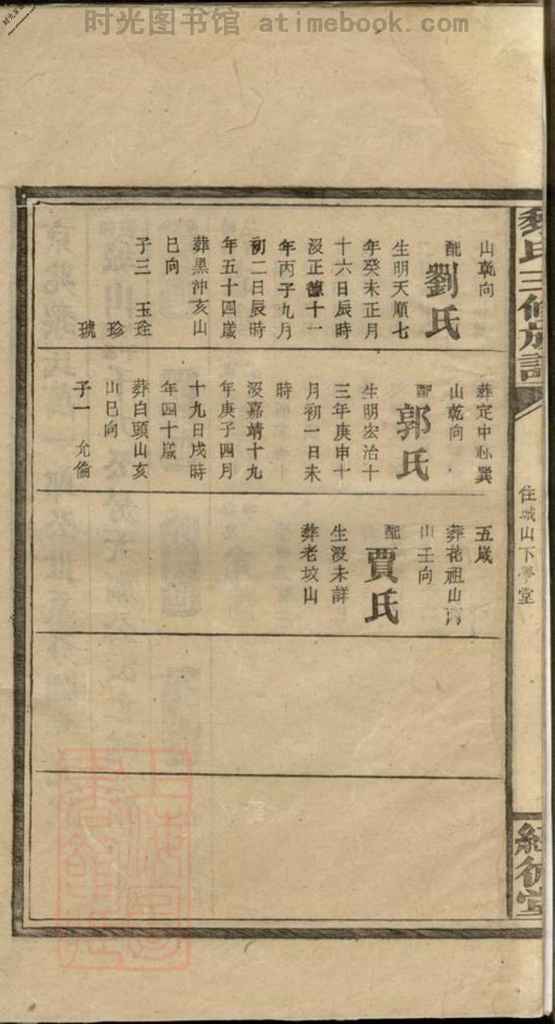 时光图书馆 atimebook.com
氏三修族譜
住城山下學堂
山乾向
配劉氏
生明天順七
年癸未正月
十六日辰時
沒正德十一
年丙子九月
初二日辰時
年五十四歲
葬黑沖亥山
巳向
子三 玉
珍
琥
葬定中心巽
山乾向
配郭氏
生明宏治十
三年庚申十
月初一日未
時
沒嘉靖十九
年庚子四月
十九日戌時
年四十歲
葬白頭山亥
山巳向
子一 允倫
五歲
葬花祖山
山壬向
配賈氏
生沒未詳
葬老坟山